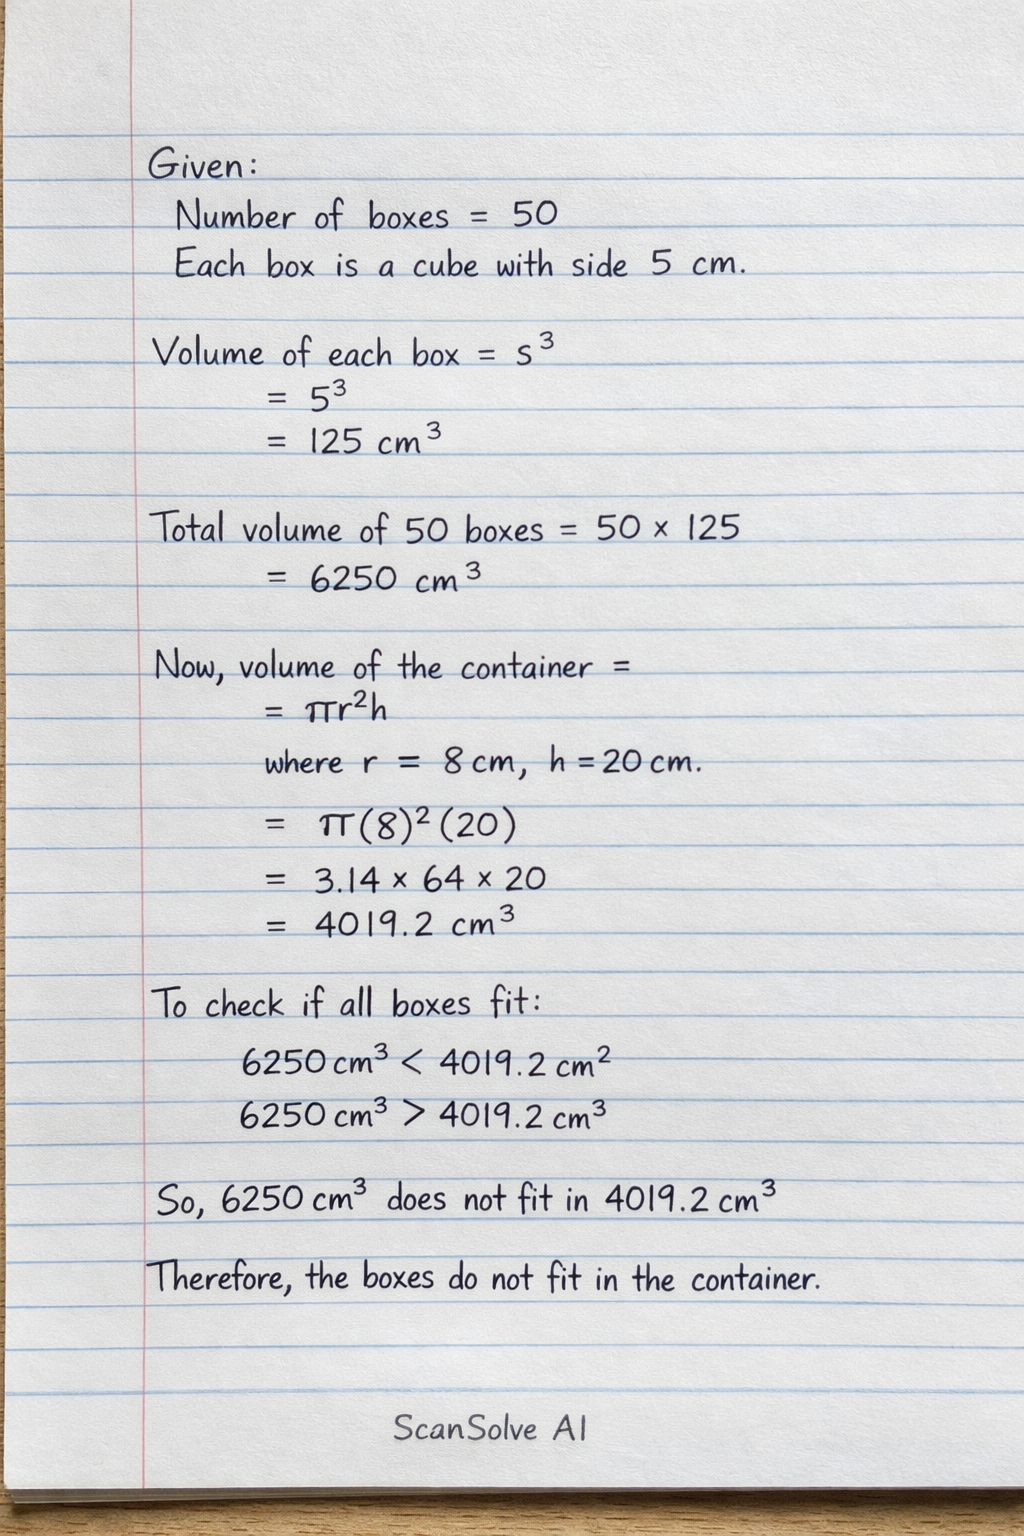 Given:
Number of boxes = 50
Each box is a cube with side 5 cm.
Volume of each box = s³
= 5³
= 125 cm³
Total volume of 50 boxes = 50 × 125
= 6250 cm³
Now, volume of the container =
= πr²h
where r = 8 cm, h = 20 cm.
= π(8)² (20)
= 3.14 × 64 × 20
= 4019.2 cm³
To check if all boxes fit:
6250 cm³ < 4019.2 cm²
6250 cm³ > 4019.2 cm³
So, 6250 cm³ does not fit in 4019.2 cm³
Therefore, the boxes do not fit in the container.
ScanSolve AI